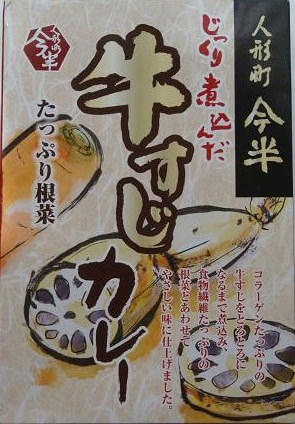 人形町 今半
人形町
今半
じっくり煮込んだ
牛すじカレー
たっぷり根菜
コラーゲンたっぷりの
牛すじをとろとろに
なるまで煮込み、
食物繊維たっぷりの
根菜とあわせて
やさしい味に仕上げました。